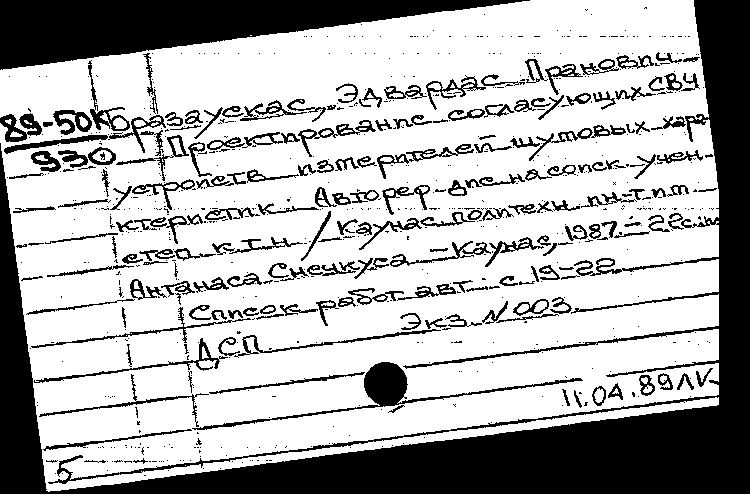 89-50К Бразаускас, Эдвардас Пранович
930 Проектирование согласующих СВЧ
устройств измерителей шумовых хара-
ктеристик: Автореф. дис. на соиск. учен.
степ. к.т.н. / Каунас. политехн. ин-т им.
Антанаса Снечкуса. - Каунас, 1987. - 22с.
Список работ авт.: с. 19-22
ДСП Экз. №003.
11.04.89 ЛК
5